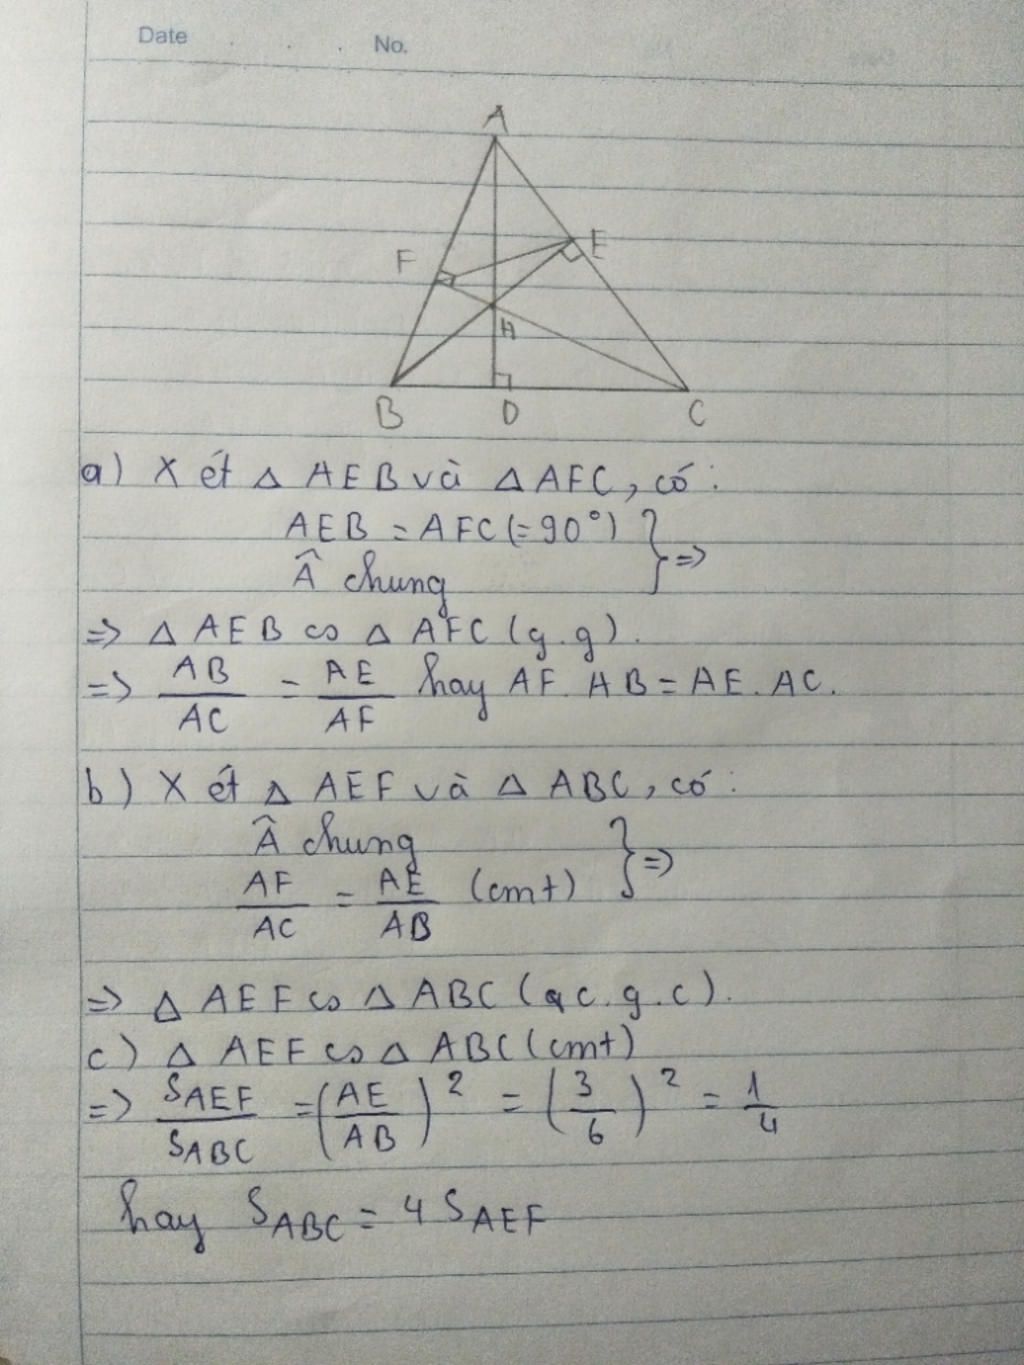 Date . . . No.
A
F E
H
B D C
a) Xét Δ AEB và Δ AFC, có:
AEB = AFC (= 90°) } =>
Â chung
=> Δ AEB ∽ Δ AFC (g.g).
=> AB/AC = AE/AF hay AF. AB = AE. AC.
b) Xét Δ AEF và Δ ABC, có:
Â chung } =>
AF/AC = AE/AB (cmt)
=> Δ AEF ∽ Δ ABC (c.g.c).
c) Δ AEF ∽ Δ ABC (cmt)
=> S_AEF/S_ABC = (AE/AB)² = (3/6)² = 1/4
hay S_ABC = 4 S_AEF